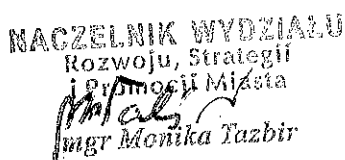 NACZELNIK WYDZIAŁU
Rozwoju, Strategii
i Promocji Miasta
mgr Monika Tazbir